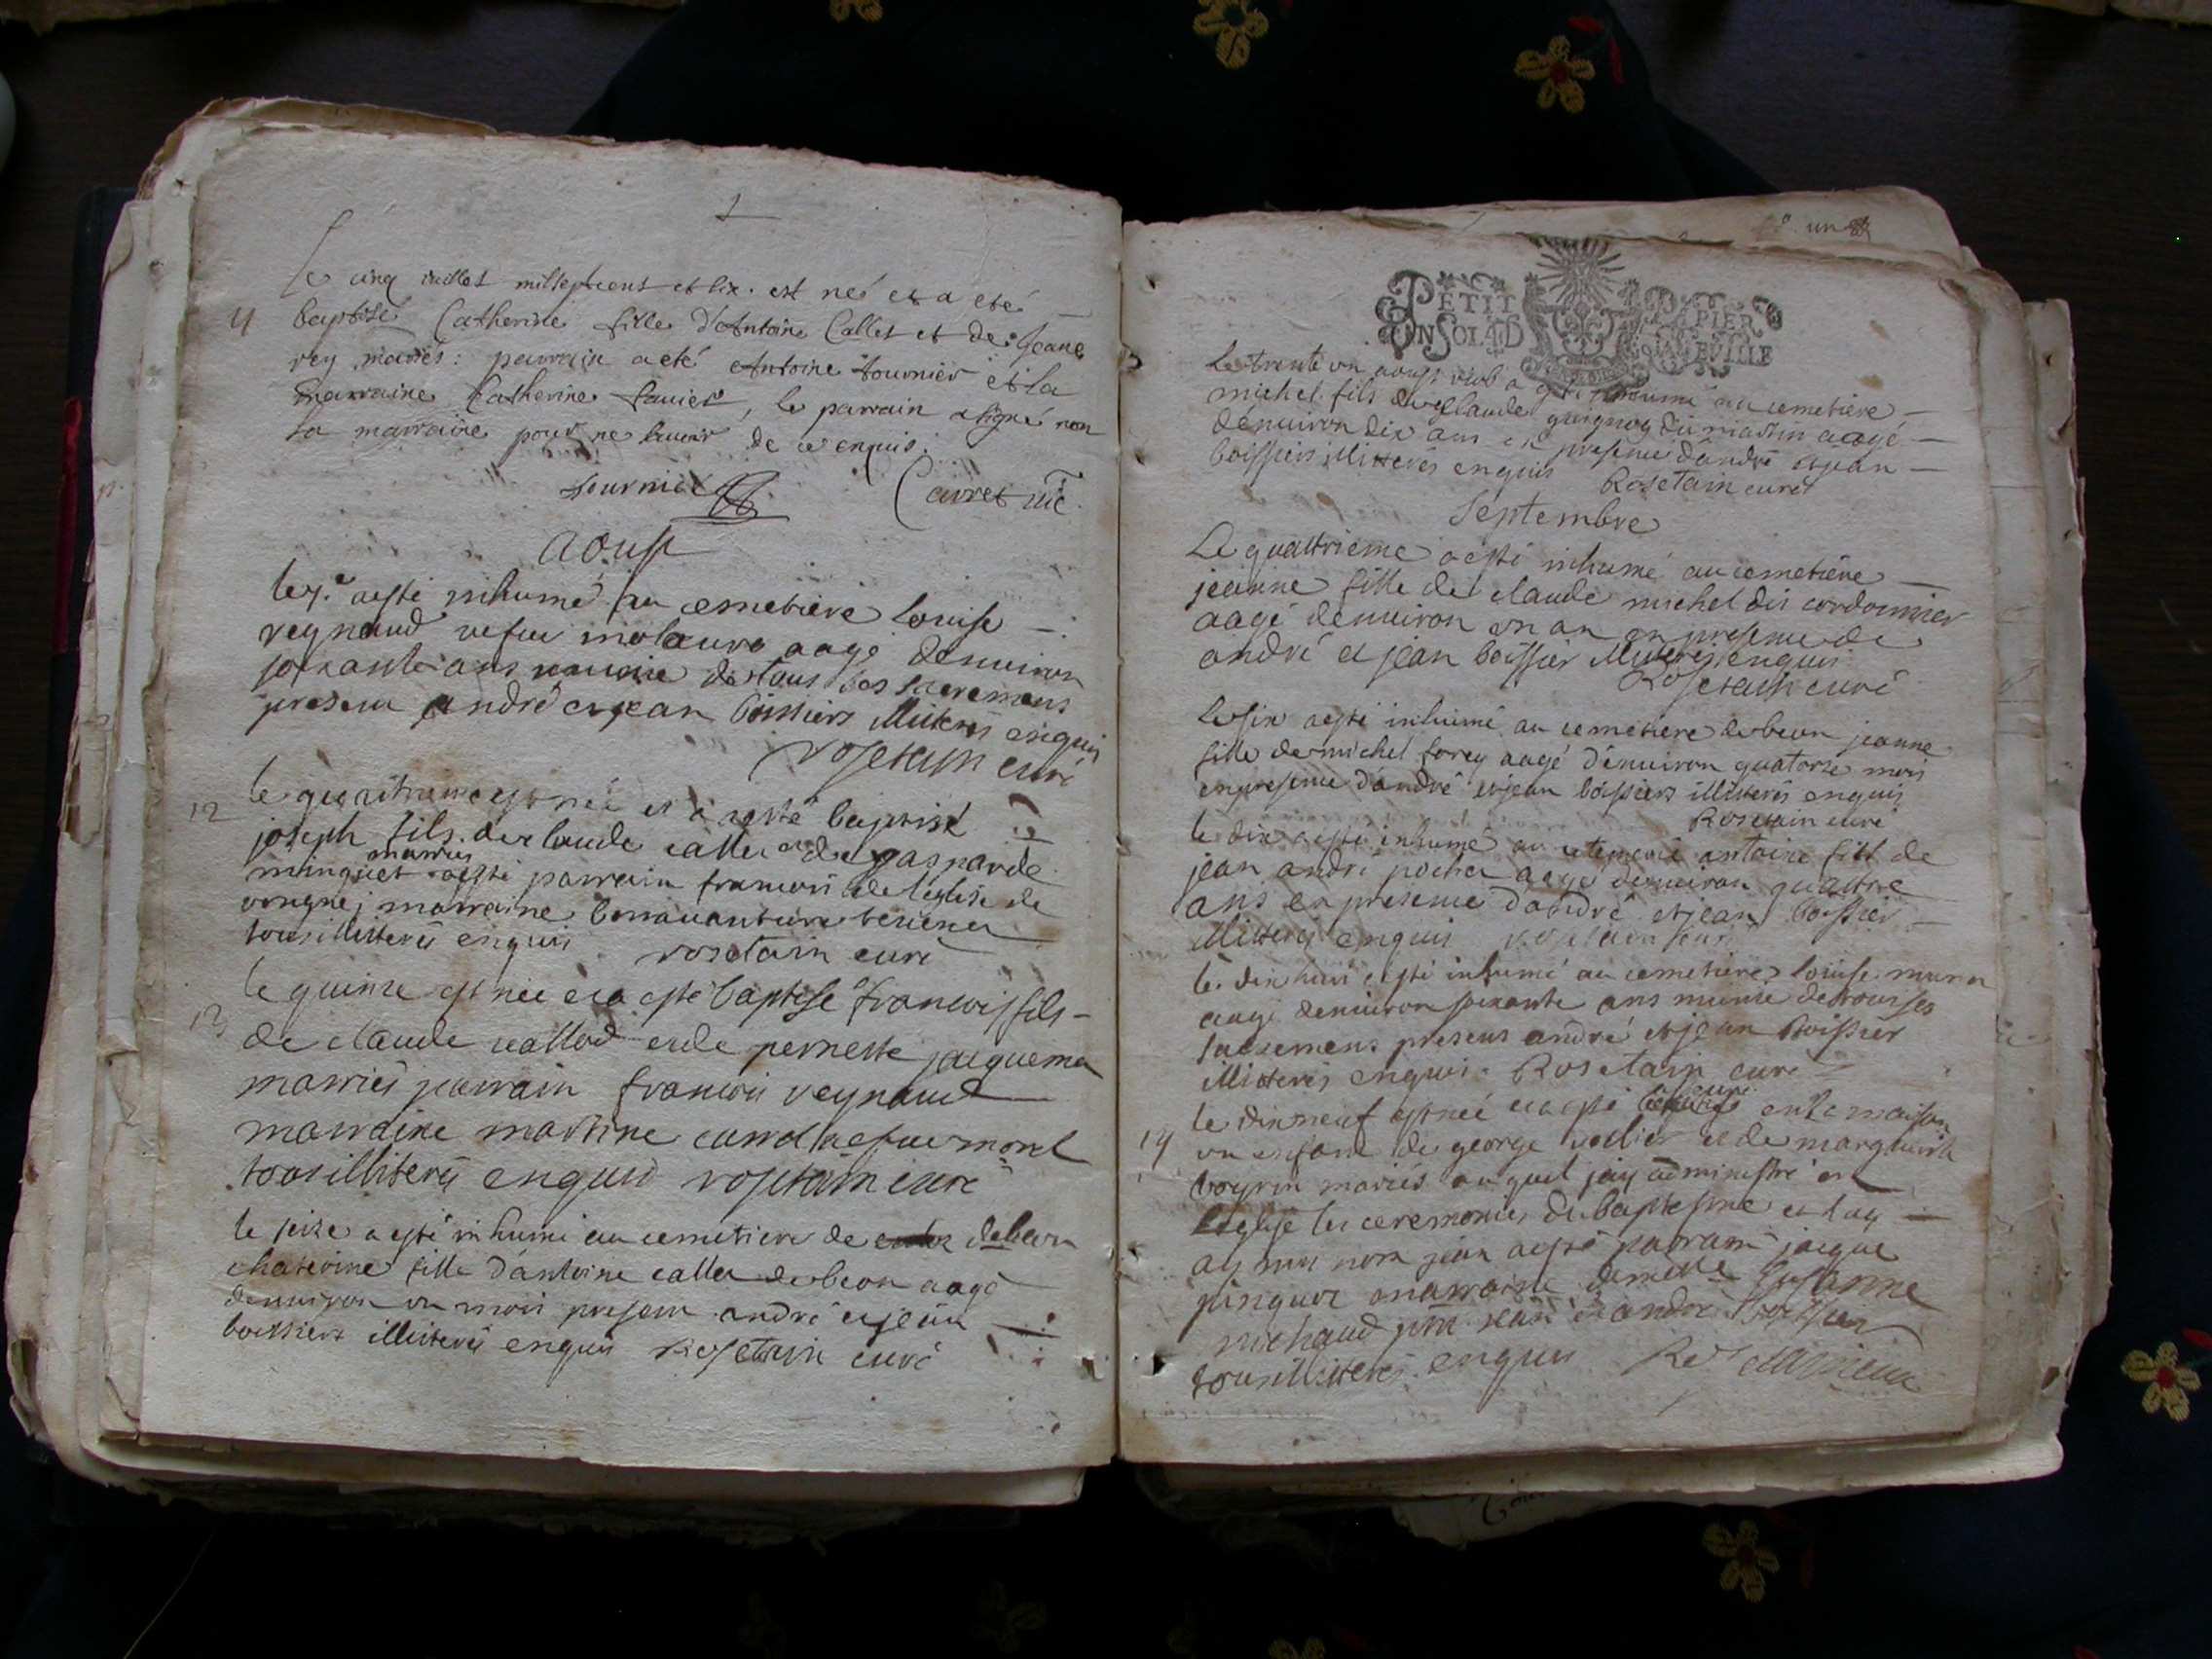 Le cinq juillet mil sept cens et dix. est né et a eté
11 baptisé Catherine fille d'Antoine Callet et de Jeane
rey mariés: parrain a eté Antoine tournier et la
marraine Catherine favier, le parrain a signé non
la marraine pour ne savoir de ce enquis.
tournier Carret vic
aoust
le 1er aesté inhumé au cemetiere louise
reynaud aagé denuiron
soixante ans munie de tous les sacremens
presens andré et jean boissiers illiterés enquis
rosetain curé
12 le quattrieme est née et a aesté baptisé
joseph fils de claude callet et de gasparde
minguet mariés aesté parrain francois de leglise de
marraine bonnauanture
tous illitterés enquis rosetain curé
13 le quinze est née et a esté baptisé francois fils
de claude vallod et de pernette jacquemet
mariés parrain francois reynaud
marraine martine
tous illiterés enquis rosetain curé
le seize a esté inhumé au cemetiere de de beon
chaterine fille d'antoine callet de beon aagé
denuiron un mois presens andré et jean
boissiers illiterés enquis Rosetain curé
un
PETIT PAPIER
UN SOL 4D LA FEVILLE
Le trente un aoust a esté inhumé au cemetiere
michel fils de claude guignoz aagé
denuiron dix ans en presence d'andré et jean
boissiers illiterés enquis Rosetain curé
Septembre
Le quattrieme aesté inhumé au cemetiére
jeanne fille de claude michel dit cordonnier
aagé denuiron un an en presence de
andré et jean boissier illiterés enquis
Rosetain curé
le six aesté inhumé au cemetiere de beon jeanne
fille de michel forey aagé d'enuiron quatorse mois
en presence d'andré et jean boissiers illiterés enquis
Rosetain curé
le dix aesté inhumé au antoine fils de
jean andré pochet aagé denuiron quattre
ans en presence d'andré et jean boissier
illiterés enquis rosetain curé
le dix huit aesté inhumé au cemetiere louise
aagé denuiron soixante ans munie de tous ses
sacremens presens andré et jean Boissier
illiterés enquis Rosetain curé
le dix neuf est née et a esté en la maison
14 un enfant de george et de marguerite
mariés auquel jay administré en
leglise les ceremonies du baptesme et luy
ay mis nom jean aesté parrain jacque
pinguet marraine demelle susanne
michaud pnt jean et andré boissier
tous illitterés enquis Rosetain curé